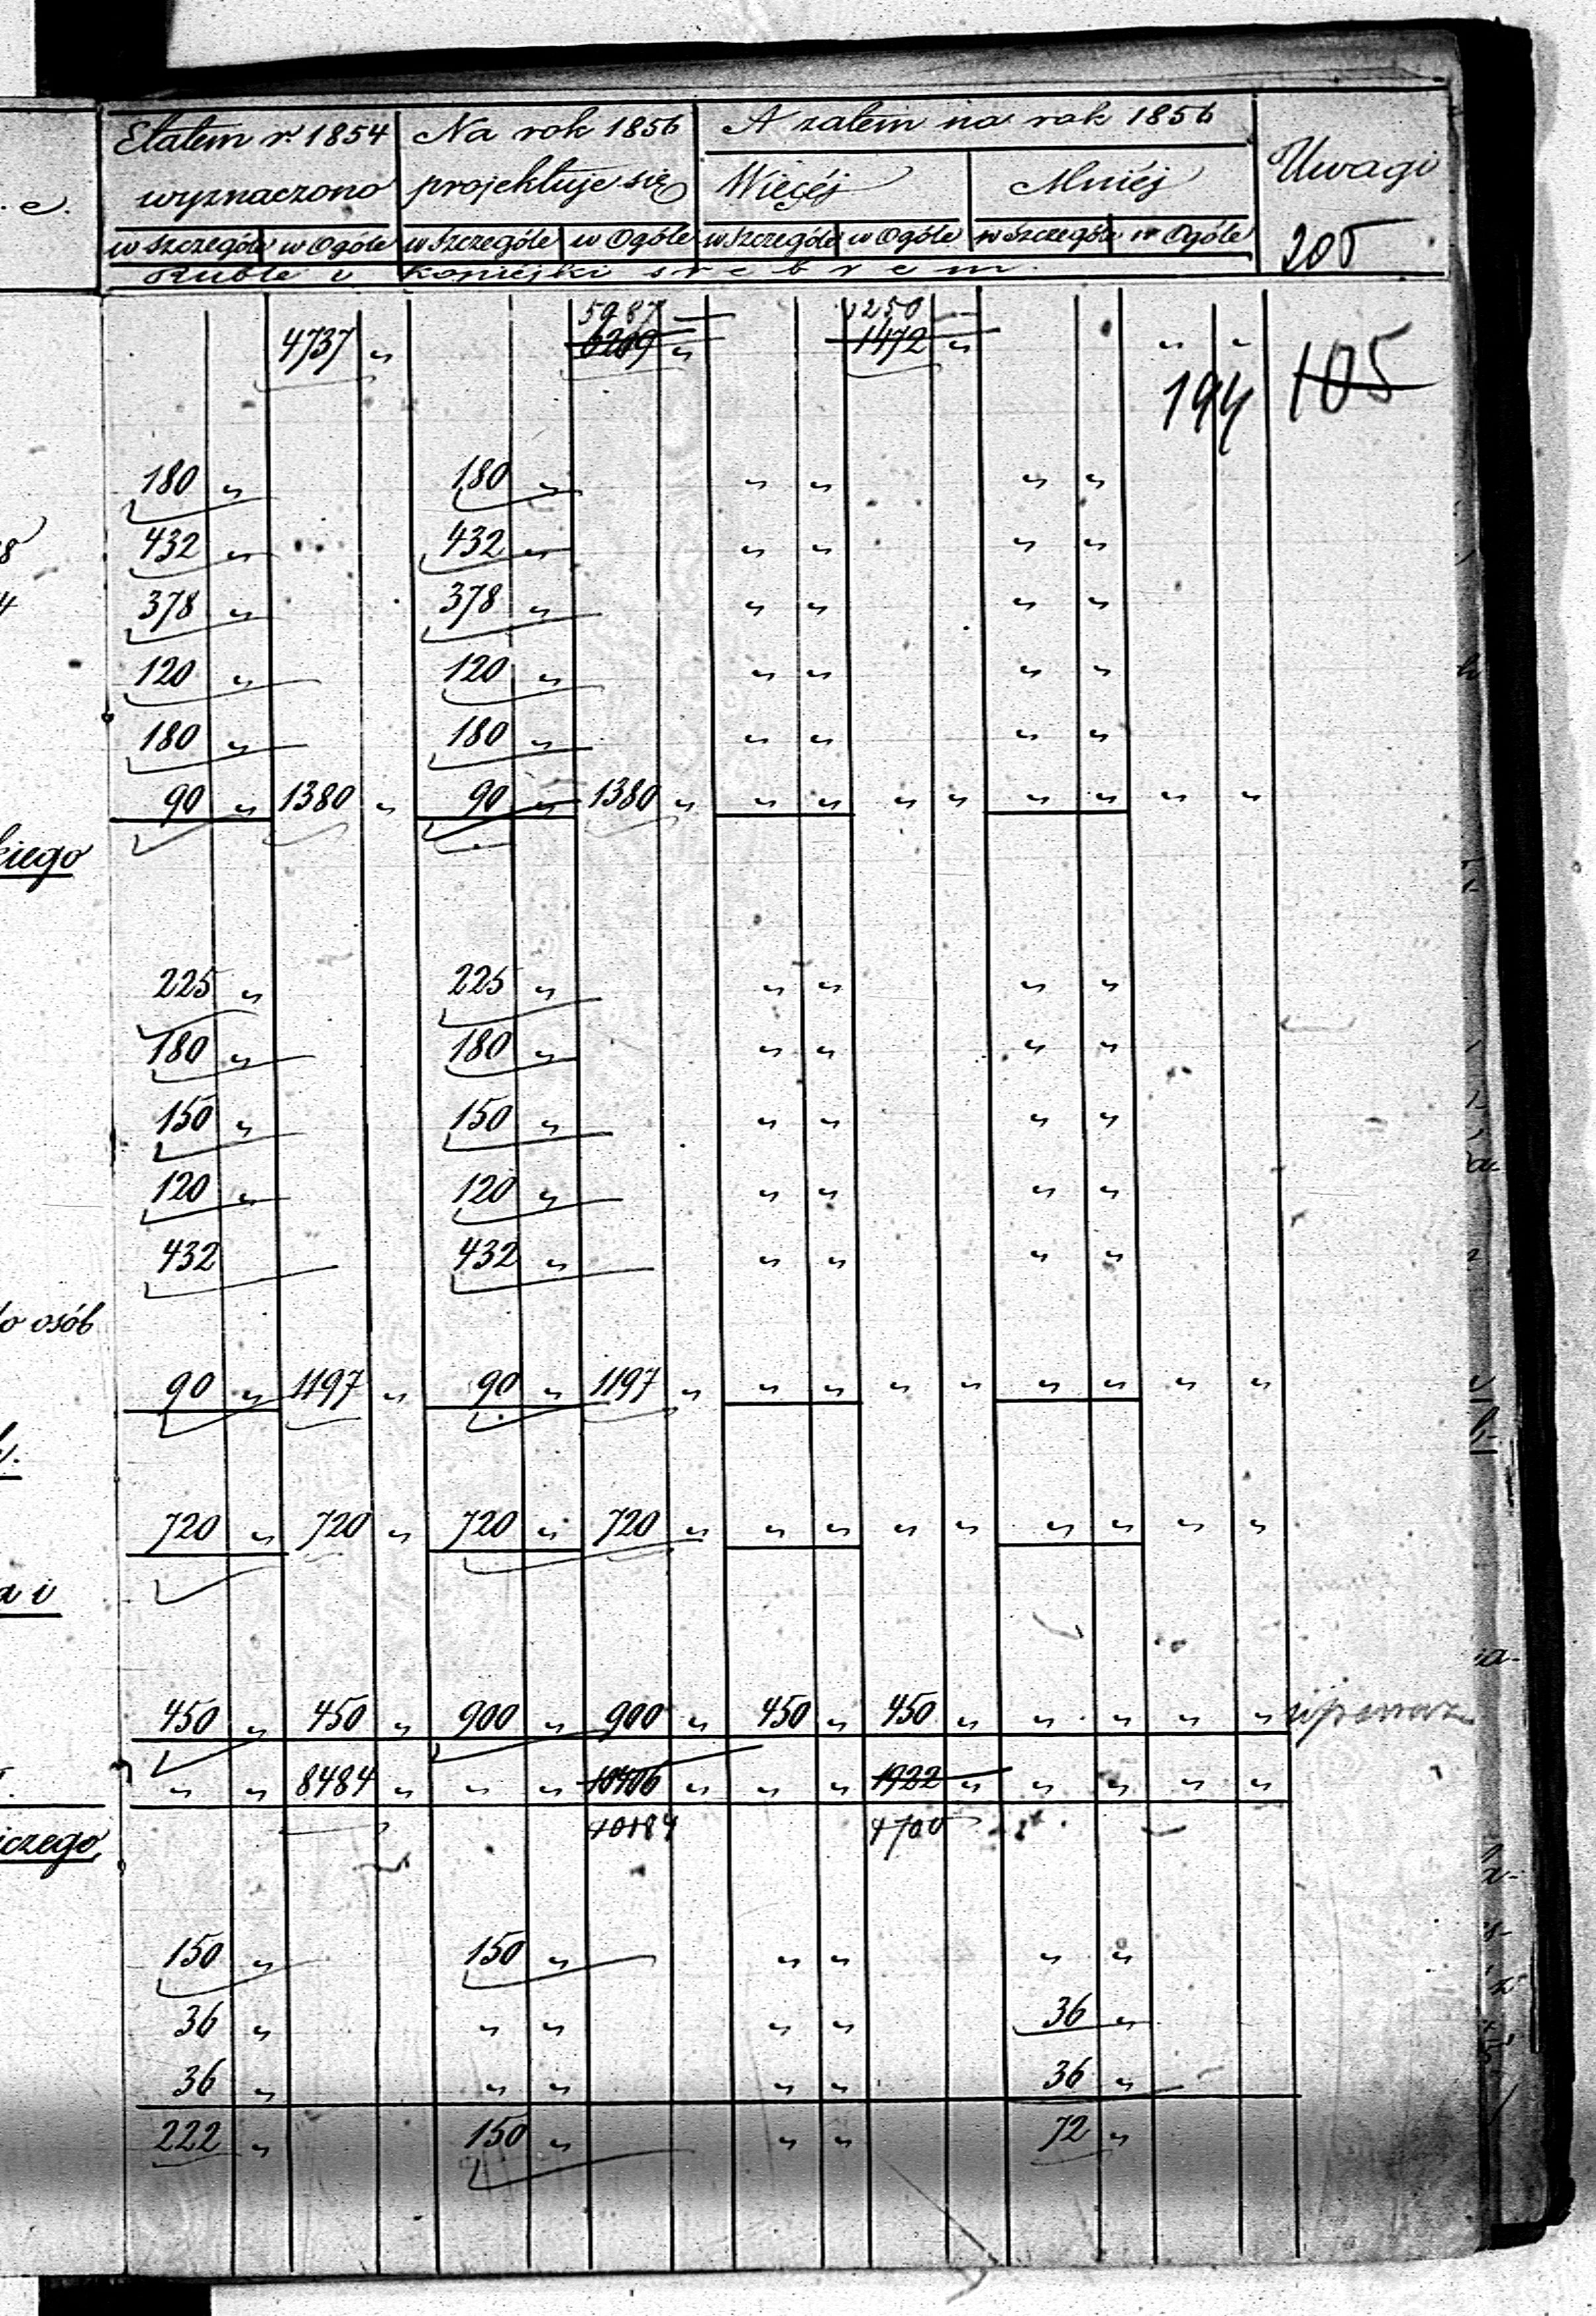 Etatem r. 1854 Na rok 1856 A zatem na rok 1856 Uwagi
wyznaczono projektuje się Więcéj Mniéj
w szczególe w Ogóle w szczególe w Ogóle w szczególe w Ogóle w szczególe w Ogóle 205
Ruble i kopiéjki srebrem.
5987 — 1250 —
4737 " 6209 " 1472 " " "
194 105
180 " 180 " " " " "
432 " 432 " " " " "
378 " 378 " " " " "
120 " 120 " " " " "
180 " 180 " " " " "
90 " 1380 " 90 " 1380 " " " " " " " " "
kiego
225 " 225 " " " " "
180 " 180 " " " " "
150 " 150 " " " " "
120 " 120 " " " " "
432 432 " " " " "
do osób
90 " 1197 " 90 " 1197 " " " " " " " " "
720 " 720 " 720 " 720 " " " " " " " " "
a i
450 " 450 " 900 " 900 " 450 " 450 " " " " "
" " 8484 " " " 10406 " " " 1922 " " " " "
10184 1700
iczego
150 " 150 " " " " "
36 " " " " " 36 "
36 " " " " " 36 "
222 " 150 " " " 72 "